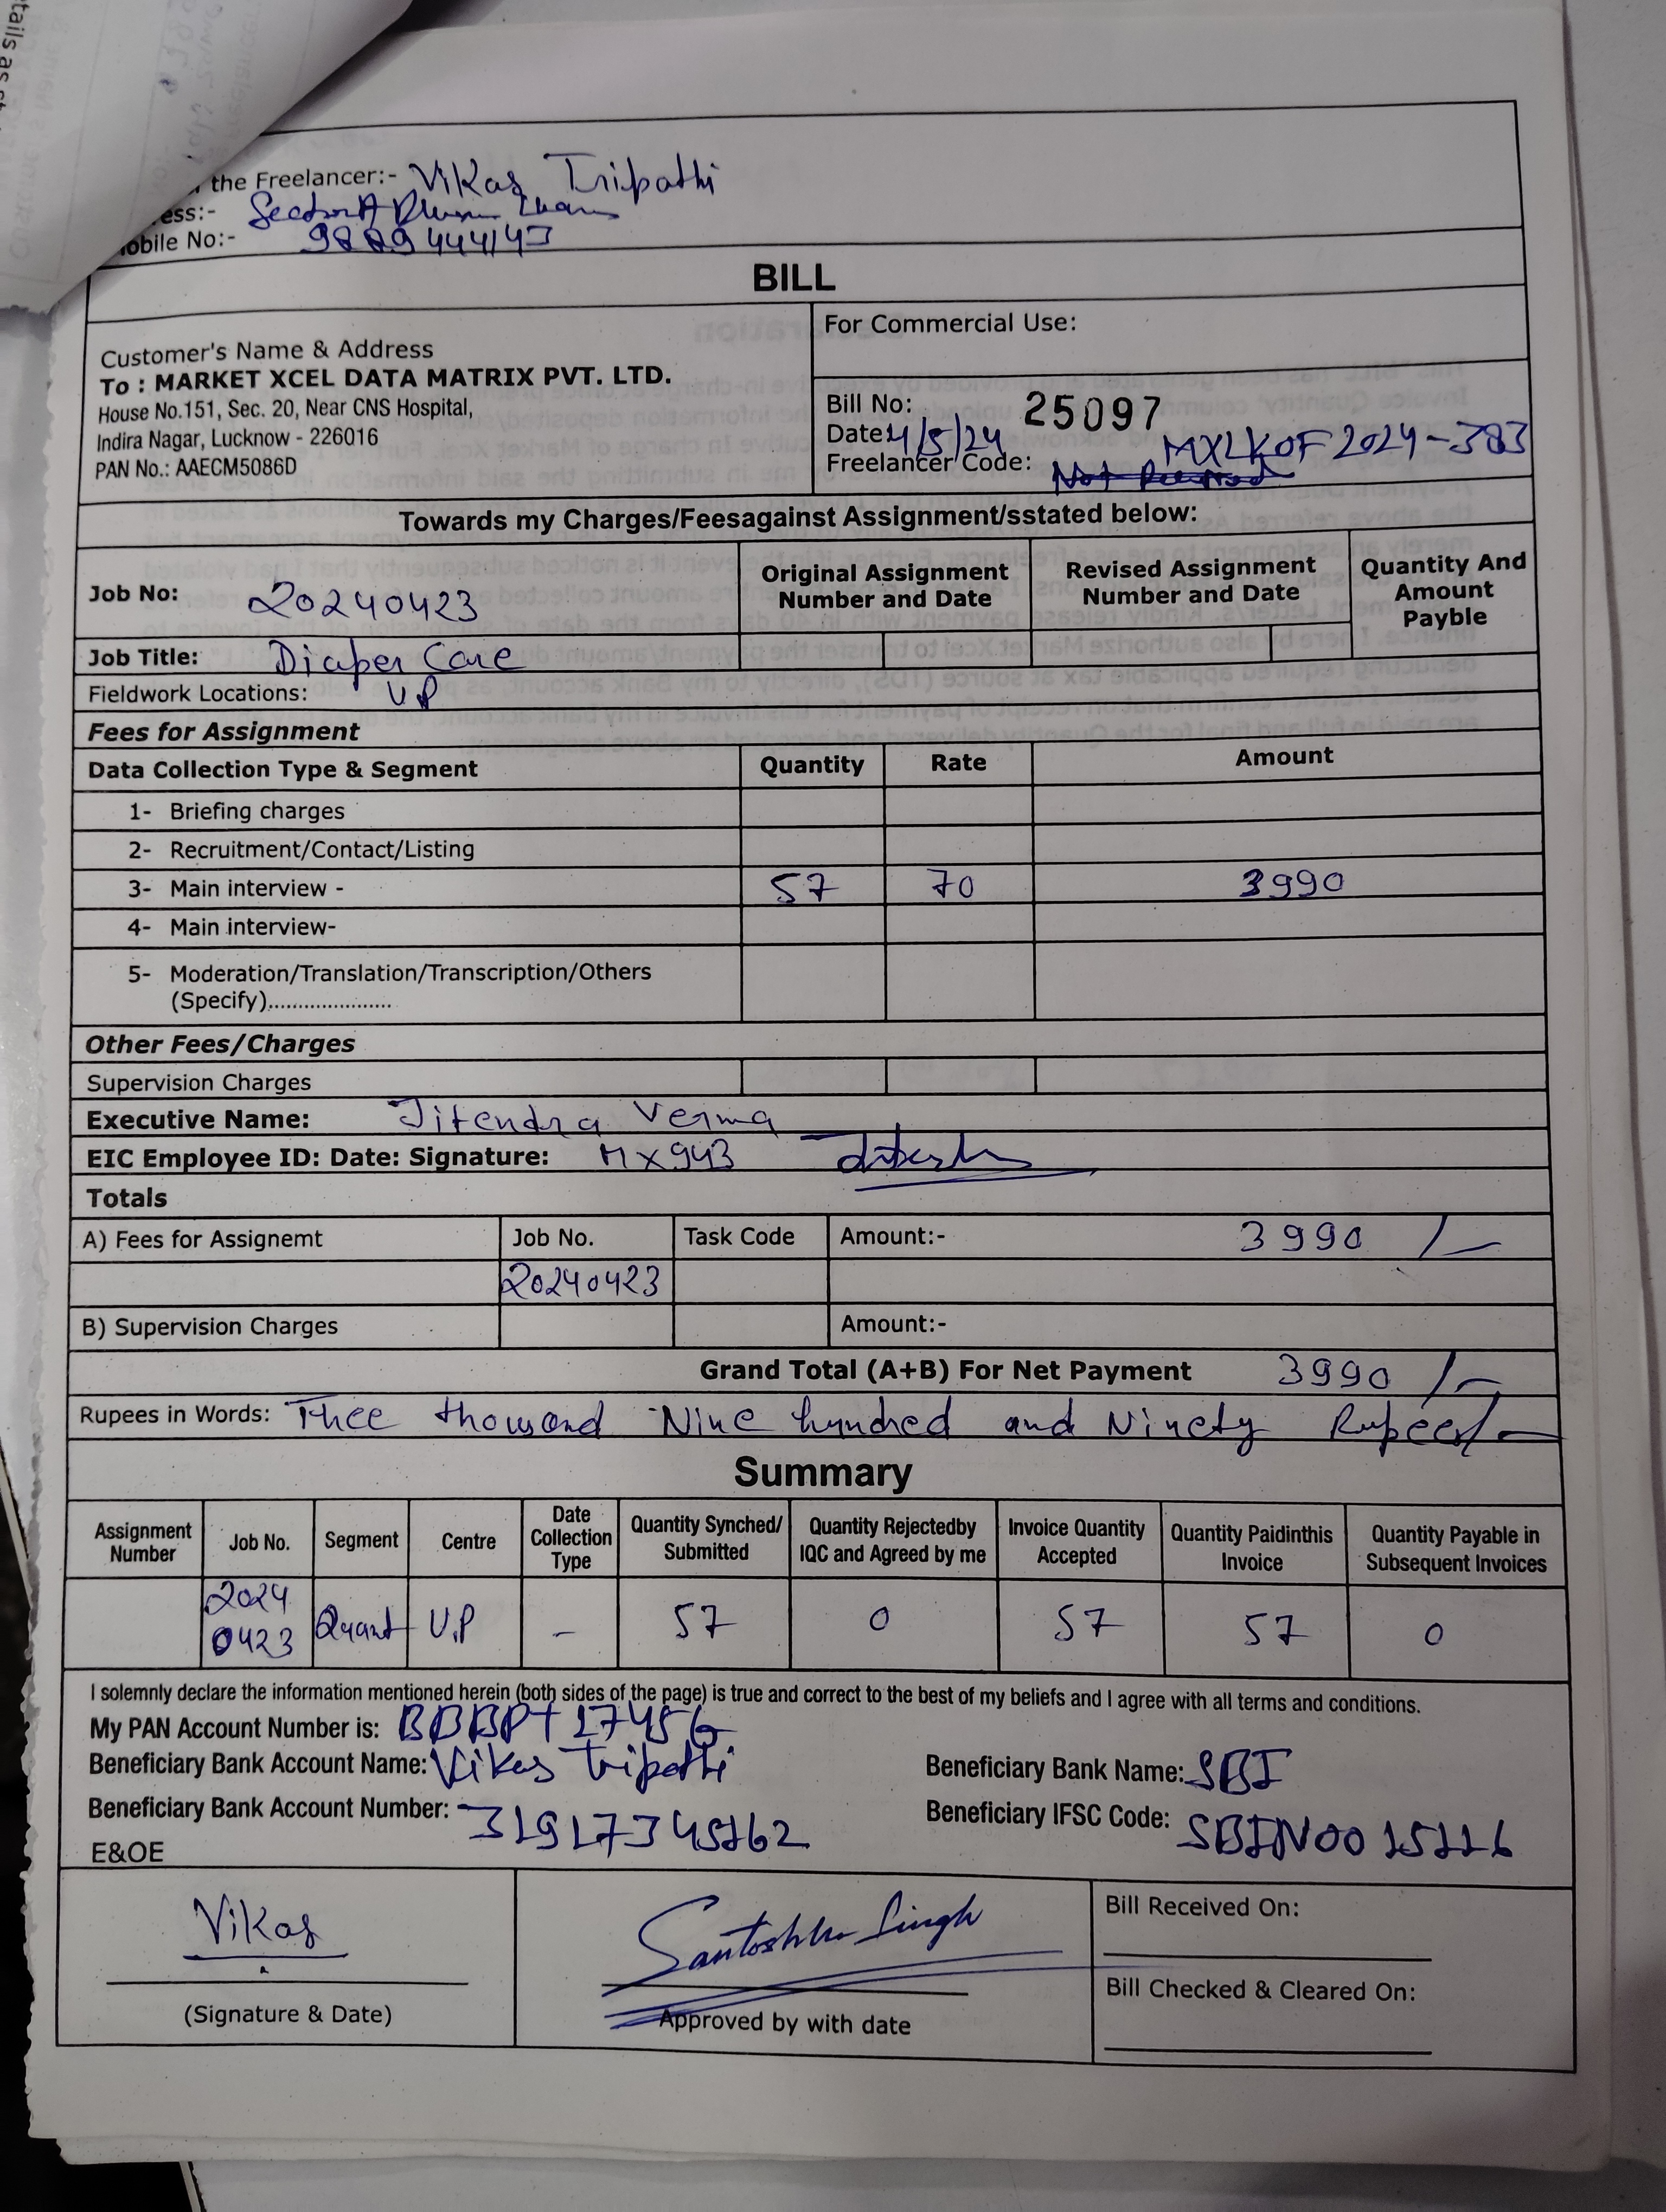 the Freelancer:- Vikas Tripathi
ess:- Sector A
obile No:- 9889444143
BILL
Customer's Name & Address
To : MARKET XCEL DATA MATRIX PVT. LTD.
House No.151, Sec. 20, Near CNS Hospital,
Indira Nagar, Lucknow - 226016
PAN No.: AAECM5086D
For Commercial Use:
Bill No: 25097
Date: 4/5/24
Freelancer Code: MXLKOF2024-383
Towards my Charges/Feesagainst Assignment/sstated below:
Job No: 20240423
Original Assignment Number and Date
Revised Assignment Number and Date
Quantity And Amount Payble
Job Title: Diaper Care
Fieldwork Locations: UP
Fees for Assignment
Data Collection Type & Segment Quantity Rate Amount
1- Briefing charges
2- Recruitment/Contact/Listing
3- Main interview - 57 70 3990
4- Main interview-
5- Moderation/Translation/Transcription/Others
(Specify).....................
Other Fees/Charges
Supervision Charges
Executive Name: Jitendra Verma
EIC Employee ID: Date: Signature: MX943
Totals
A) Fees for Assignemt Job No. Task Code Amount:- 3990 /-
20240423
B) Supervision Charges Amount:-
Grand Total (A+B) For Net Payment 3990 /-
Rupees in Words: Thee thousand Nine hundred and Ninety Rupees/-
Summary
Assignment Number Job No. Segment Centre Date Collection Type Quantity Synched/ Submitted Quantity Rejectedby IQC and Agreed by me Invoice Quantity Accepted Quantity Paidinthis Invoice Quantity Payable in Subsequent Invoices
2024 0423 Quant U.P - 57 0 57 57 0
I solemnly declare the information mentioned herein (both sides of the page) is true and correct to the best of my beliefs and I agree with all terms and conditions.
My PAN Account Number is: BBBPT1745G
Beneficiary Bank Account Name: Vikas Tripathi
Beneficiary Bank Name: SBI
Beneficiary Bank Account Number: 31917345162
Beneficiary IFSC Code: SBIN0015116
E&OE
Vikas
(Signature & Date)
Santoshkr Singh
Approved by with date
Bill Received On:
Bill Checked & Cleared On: